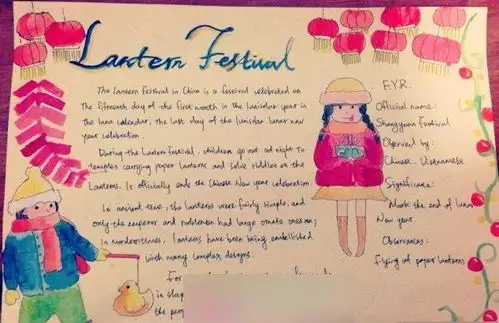 Lantern Festival
The lantern festival in China is a festival celebrated on
the fifteenth day of the first month in the lunisolar year in
the lunar calendar, the last day of the lunisolar lunar new
year celebration.
During the Lantern Festival, children go out at night to
temples carrying paper lanterns and solve riddles on the
lanterns. Is officially ends the Chinese New year celebration
In ancient time, the lanterns were fairly simple, and
only the emperor and noblemen had large ornate ones;
In modern times, lanterns have been being embellished
with many complex designs.
For
in shap
the peop
F.Y.R.
Official name:
Shangyuan Festival
Observed by:
Chinese. Vietnamese
Significane:
Mark the end of lunar
New year.
Observances:
Flying of paper lanterns